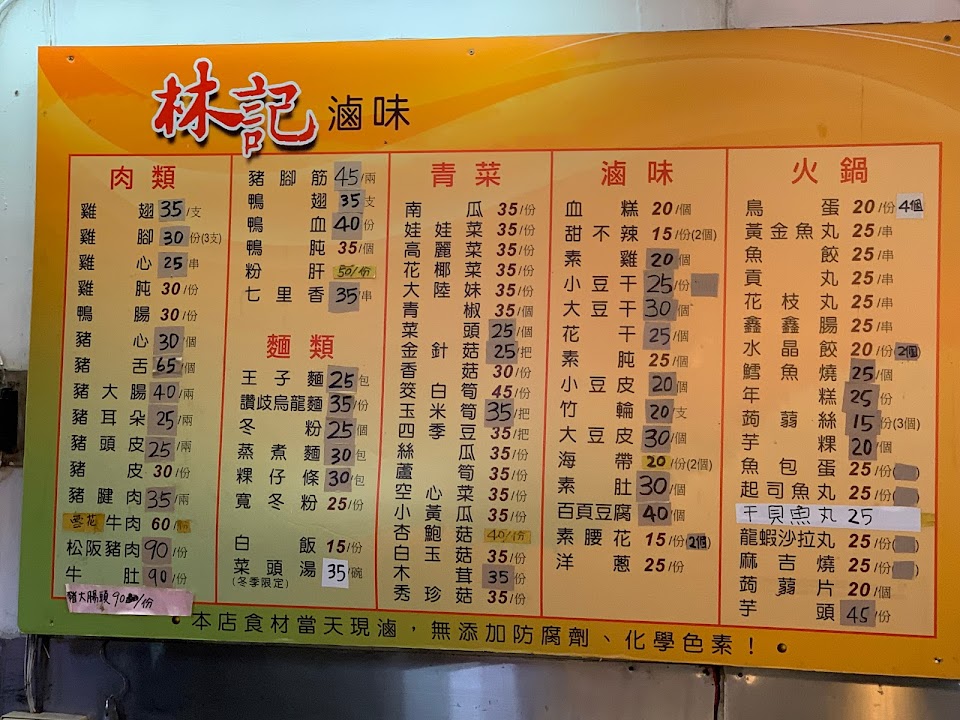 林記 滷味
肉類
雞翅 35/支
雞腳 30 份(3支)
雞心 25 串
雞肫 30/份
鴨腸 30/份
豬心 30/個
豬舌 65/個
豬大腸 40/兩
豬耳朵 25/兩
豬頭皮 25/兩
豬皮 30/份
豬腱肉 35/兩
雪花牛肉 60/
松阪豬肉 90/份
牛肚 90/份
豬大腸頭 90/份
豬腳筋 45/兩
鴨翅 35 支
鴨血 40/份
鴨肫 35/個
粉肝 50/份
七里香 35/串
麵類
王子麵 25 包
讚歧烏龍麵 35/份
冬粉 25 個
蒸煮麵 30 包
粿仔條 30/包
寬冬粉 25/份
白飯 15/份
菜頭湯 35 碗
(冬季限定)
青菜
南瓜 35/份
娃娃菜 35/份
高麗菜 35/份
花椰菜 35/份
大陸妹 35/份
青椒 35/個
菜頭 25/個
金針菇 25/把
香菇 30/份
筊白筍 45/份
玉米筍 35/把
四季豆 35/把
絲瓜 35/份
蘆筍 35/份
空心菜 35/份
小黃瓜 35/份
杏鮑菇 40/份
白玉菇 35/份
木茸 35/份
秀珍菇 35/份
滷味
血糕 20/個
甜不辣 15/份(2個)
素雞 20 個
小豆干 25/份
大豆干 30/個
花干 25/個
素肫 25/個
小豆皮 20 個
竹輪 20/支
大豆皮 30/個
海帶 20/份(2個)
素肚 30/個
百頁豆腐 40/個
素腰花 15/份(2個)
洋蔥 25/份
火鍋
鳥蛋 20/份 4個
黃金魚丸 25/串
魚餃 25/串
貢丸 25/串
花枝丸 25/串
鑫鑫腸 25/串
水晶餃 20/份(2個)
鱈魚燒 25/個
年糕 25 份
蒟蒻絲 15 份(3個)
芋粿 20/個
魚包蛋 25/份
起司魚丸 25/份
干貝魚丸 25
龍蝦沙拉丸 25/份
麻吉燒 25/份
蒟蒻片 20/個
芋頭 45/份
本店食材當天現滷，無添加防腐劑、化學色素！